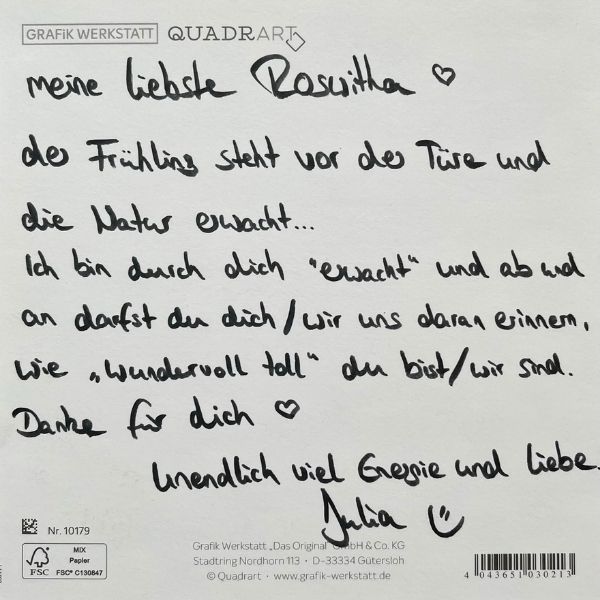 GRAFiK WERKSTATT QUADRART
meine liebste Roswitha ♡
der Frühling steht vor der Türe und
die Natur erwacht...
Ich bin durch dich "erwacht" und ab und
an darfst du dich/wir uns daran erinnern,
wie „wundervoll toll" du bist/wir sind.
Danke für dich ♡
Unendlich viel Energie und Liebe.
Julia
Nr. 10179
Grafik Werkstatt „Das Original" GmbH & Co. KG
Stadtring Nordhorn 113 · D-33334 Gütersloh
© Quadrart · www.grafik-werkstatt.de
FSC
MIX
Papier
FSC® C130847
4 043651 030213